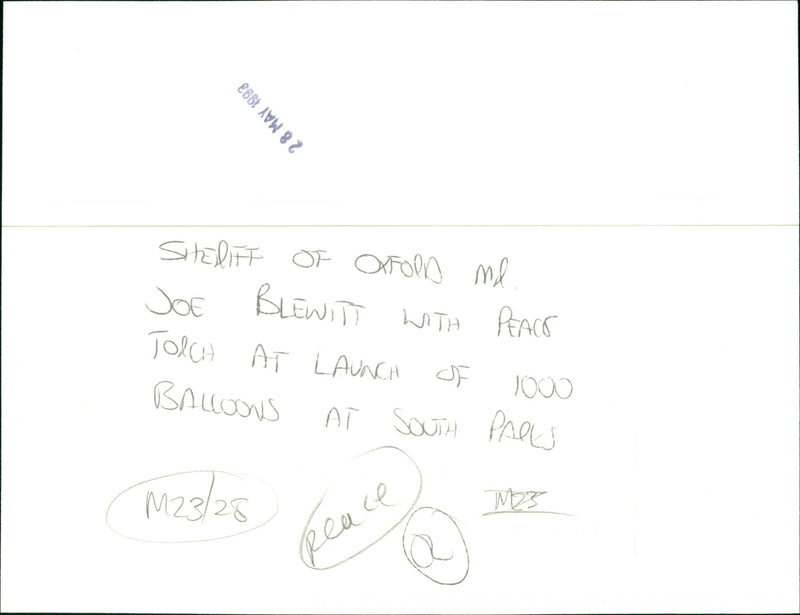 28 MAY 1993
SHERIFF OF OXFORD MR.
JOE BLEWITT WITH PEACE
TORCH AT LAUNCH OF 1000
BALLOONS AT SOUTH PARKS
M23/28
peace
M23